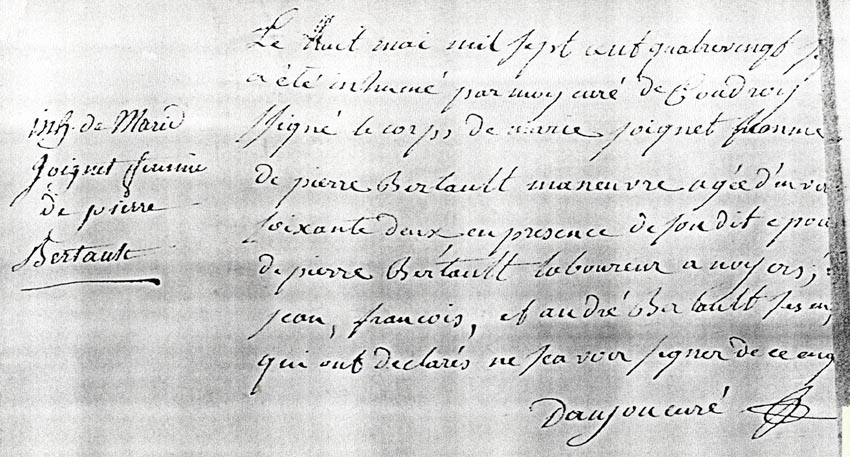 inh. de Marie
Joignet femme
de pierre
Bertault
Le huit mai mil sept cent quatrevingt
a été inhumé par moy curé de Coudroy
signé le corps de marie joignet femme
de pierre Bertault maneuvre agée d'environ
soixante deux en presence de son dit epou
de pierre Bertault laboureur a noyers,
jean, francois, et andré Bertault ses
qui ont declarés ne scavoir signer de ce enq
Danjou curé